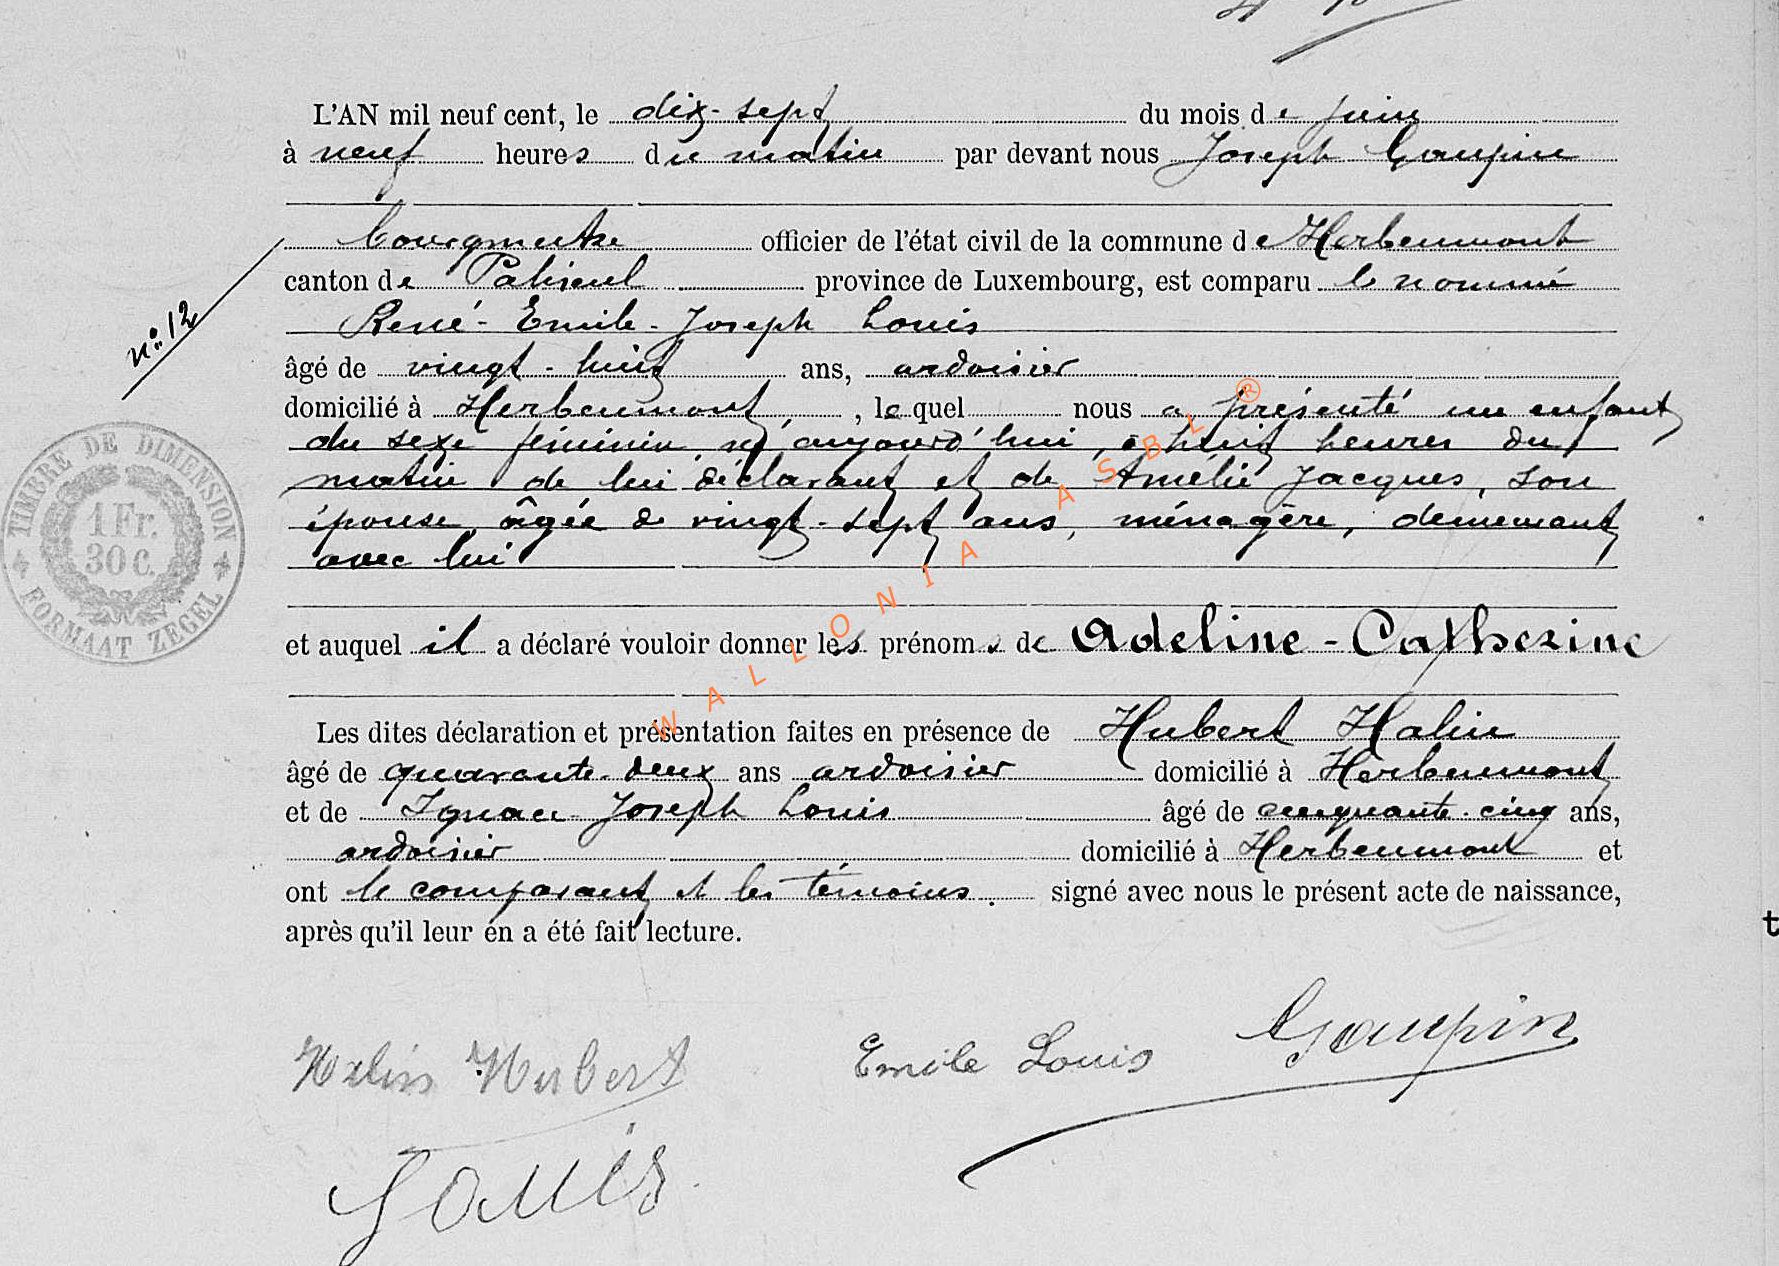 L'AN mil neuf cent, le dix-sept du mois de juin
à neuf heures du matin par devant nous Joseph Gaupin
Bourgmestre officier de l'état civil de la commune de Herbeumont
canton de Paliseul province de Luxembourg, est comparu le nommé
n° 12
René-Emile-Joseph Louis
âgé de vingt-huit ans, ardoisier
domicilié à Herbeumont, lequel nous a présenté un enfant
du sexe féminin, né aujourd'hui, à huit heures du
matin de lui déclarant et de Amélie Jacques, son
épouse, âgée de vingt-sept ans, ménagère, demeurant
avec lui
TIMBRE DE DIMENSION
1 Fr.
30 C.
FORMAAT ZEGEL
et auquel il a déclaré vouloir donner les prénoms de Adeline-Catherine
Les dites déclaration et présentation faites en présence de Hubert Halin
âgé de quarante-deux ans ardoisier domicilié à Herbeumont
et de Ignace Joseph Louis âgé de cinquante-cinq ans,
ardoisier domicilié à Herbeumont et
ont le comparant et les témoins. signé avec nous le présent acte de naissance,
après qu'il leur en a été fait lecture.
Halin Hubert Emile Louis Gaupin
Louis
WALLONIA ASBL ®
t